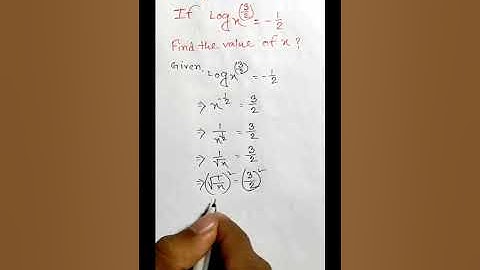 If Log x^(3/2) = -1/2
Find the value of x?
Given, Log x^(3/2) = -1/2
⇒ x^(-1/2) = 3/2
⇒ 1/x^(1/2) = 3/2
⇒ 1/√x = 3/2
⇒ (√(1/x))² = (3/2)²